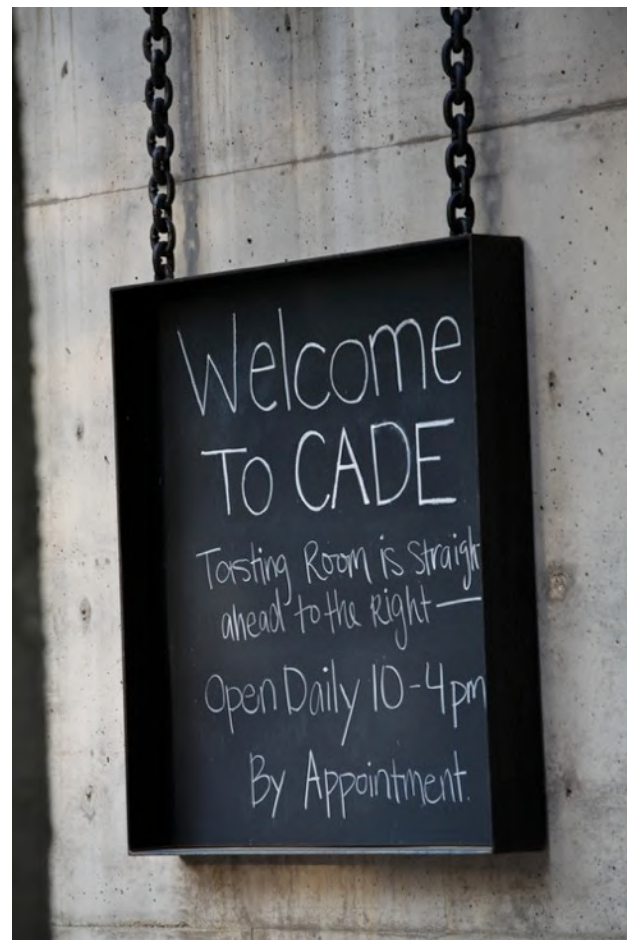 Welcome
To CADE
Tasting Room is Straigh
ahead to the Right
Open Daily 10-4pm
By Appointment.